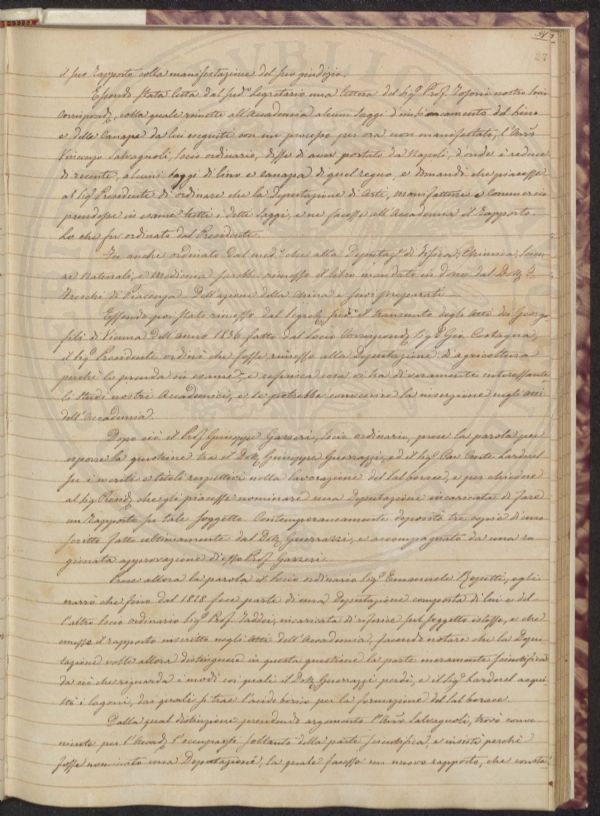 27
il suo rapporto colla manifestazione del suo giudizio.
Essendo stata letta dal sud.º Segretario una lettera del Sig.r Prof. nostro Socio
Corrispond.e, colla quale rimette all'Accademia alcuni saggi d'imbiancamento del lino
e della Canapa da lui eseguite con un processo per ora non manifestato, l'Avv.
Vincenzo Salvagnoli, socio ordinario, disse di aver portato da Napoli, d'onde è reduce
di recente, alcuni saggi di lino e canapa di quel regno, e domandò che piacesse
al Sig.r Presidente di ordinare che la Deputazione di Arti, manifatture e Commercio
prendesse in esame tutti i detti saggi, e ne facesse all'Accademia il rapporto.
Lo che fu ordinato dal Presidente.
Fu anche ordinato dal med.º che alla Deputaz.e di Fisica, Chimica, Scien-
ze Naturali, e Medicina sarebbe rimesso il libro mandato in dono dal Dott.
di Piacenza Dell'azione della China e suoi preparati
Essendo poi stato rimesso dal Segret.º sud.º il transunto degli Atti dei Georgo-
fili di Vienna dell'anno 1836 fatto dal Socio Corrispond.e Sig.r Gio.
il Sig.r Presidente ordinò che fosse rimesso alla Deputazione di agricoltura
perchè lo prenda in esame, e referisca cosa vi ha di veramente interessante
li studi nostri Accademici, e se potrebbe convenirne la inserzione negli atti
dell'Accademia.
Dopo ciò il Prof. Giuseppe Gazzeri, socio ordinario, prese la parola per
esporre la questione tra il Dott. Giuseppe Guerrazzi, ed il Sig.r Cav. Conte Larderel
su i meriti e titoli respettivi nella lavorazione del sal borace, e per chiedere
al Sig.r Presid.e che gli piacesse nominare una Deputazione incaricata di fare
un rapporto su tale soggetto. Contemporaneamente depositò tre copie d'uno
scritto fatto ultimamente dal Dott. Guerrazzi, e accompagnato da una ra-
gionata approvazione di esso Prof. Gazzeri.
Prese allora la parola il Socio ordinario Sig.r Emanuele Repetti, egli
narrò che fino dal 1828 fece parte di una Deputazione composta di lui e del-
l'altro Socio ordinario Sig.r Prof. Taddei, incaricata di riferire sul soggetto istesso, e che
emesse il rapporto inscritto negli Atti dell'Accademia, facendo notare che la Depu-
tazione volle allora distinguere in questa questione la parte meramente scientifica
da ciò che riguarda i modi coi quali il Dott. Guerrazzi perdè, e il Sig.r Larderel acqui-
stò i lagoni, dai quali si trae l'acido borico per la formazione del sal borace.
Dalla qual distinzione prendendo argomento l'Avv. Salvagnoli, trovò conve-
niente per l'Accad.a l'occuparsi soltanto della parte scientifica, e insistè perchè
fosse nominata una Deputazione, la quale facesse un nuovo rapporto, che consta-